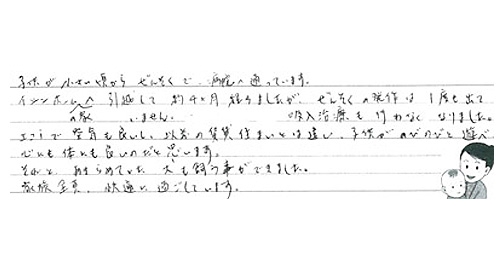 子供が小さい頃から ぜんそくで、病院へ通っています。
イシンホームの家へ引越して 約4ヶ月経ちましたが、ぜんそくの発作は1度も出て
いません。 吸入治療も行わなくなりました。
エコで空気も良いし、以前の賃貸住まいとは違い、子供がのびのびと遊べ
心にも体にも良いのだと思います。
それと、あきらめていた 犬も飼う事ができました。
家族全員、快適に過ごしています。